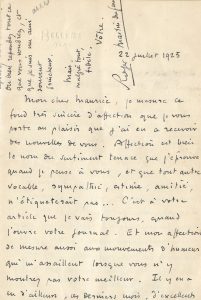 22 juillet 1925
Mon cher Maurice, je mesure ce
fond très vuide d'affection que je vous
porte au plaisir que j'ai eu à recevoir
des nouvelles de vous. Affection est bien
le nom du sentiment tenace que j'éprouve
quand je pense à vous, et que tout autre
vocable, sympathie, estime, amitié,
n'étiquèterait pas... C'est à votre
article que je vais toujours, quand
j'ouvre votre journal. Et mon affection
se mesure aussi aux mouvements d'humeur
qui m'assaillent lorsque vous n'y
montrez pas votre meilleur. Il y en a
eu d'ailleurs, ces derniers mois, d'excellents
Ou ne répondez tout ce
que vous voudrez, et
que je suis un ami
sincère
Mais
malgré tout,
fidèle.
Vôtre